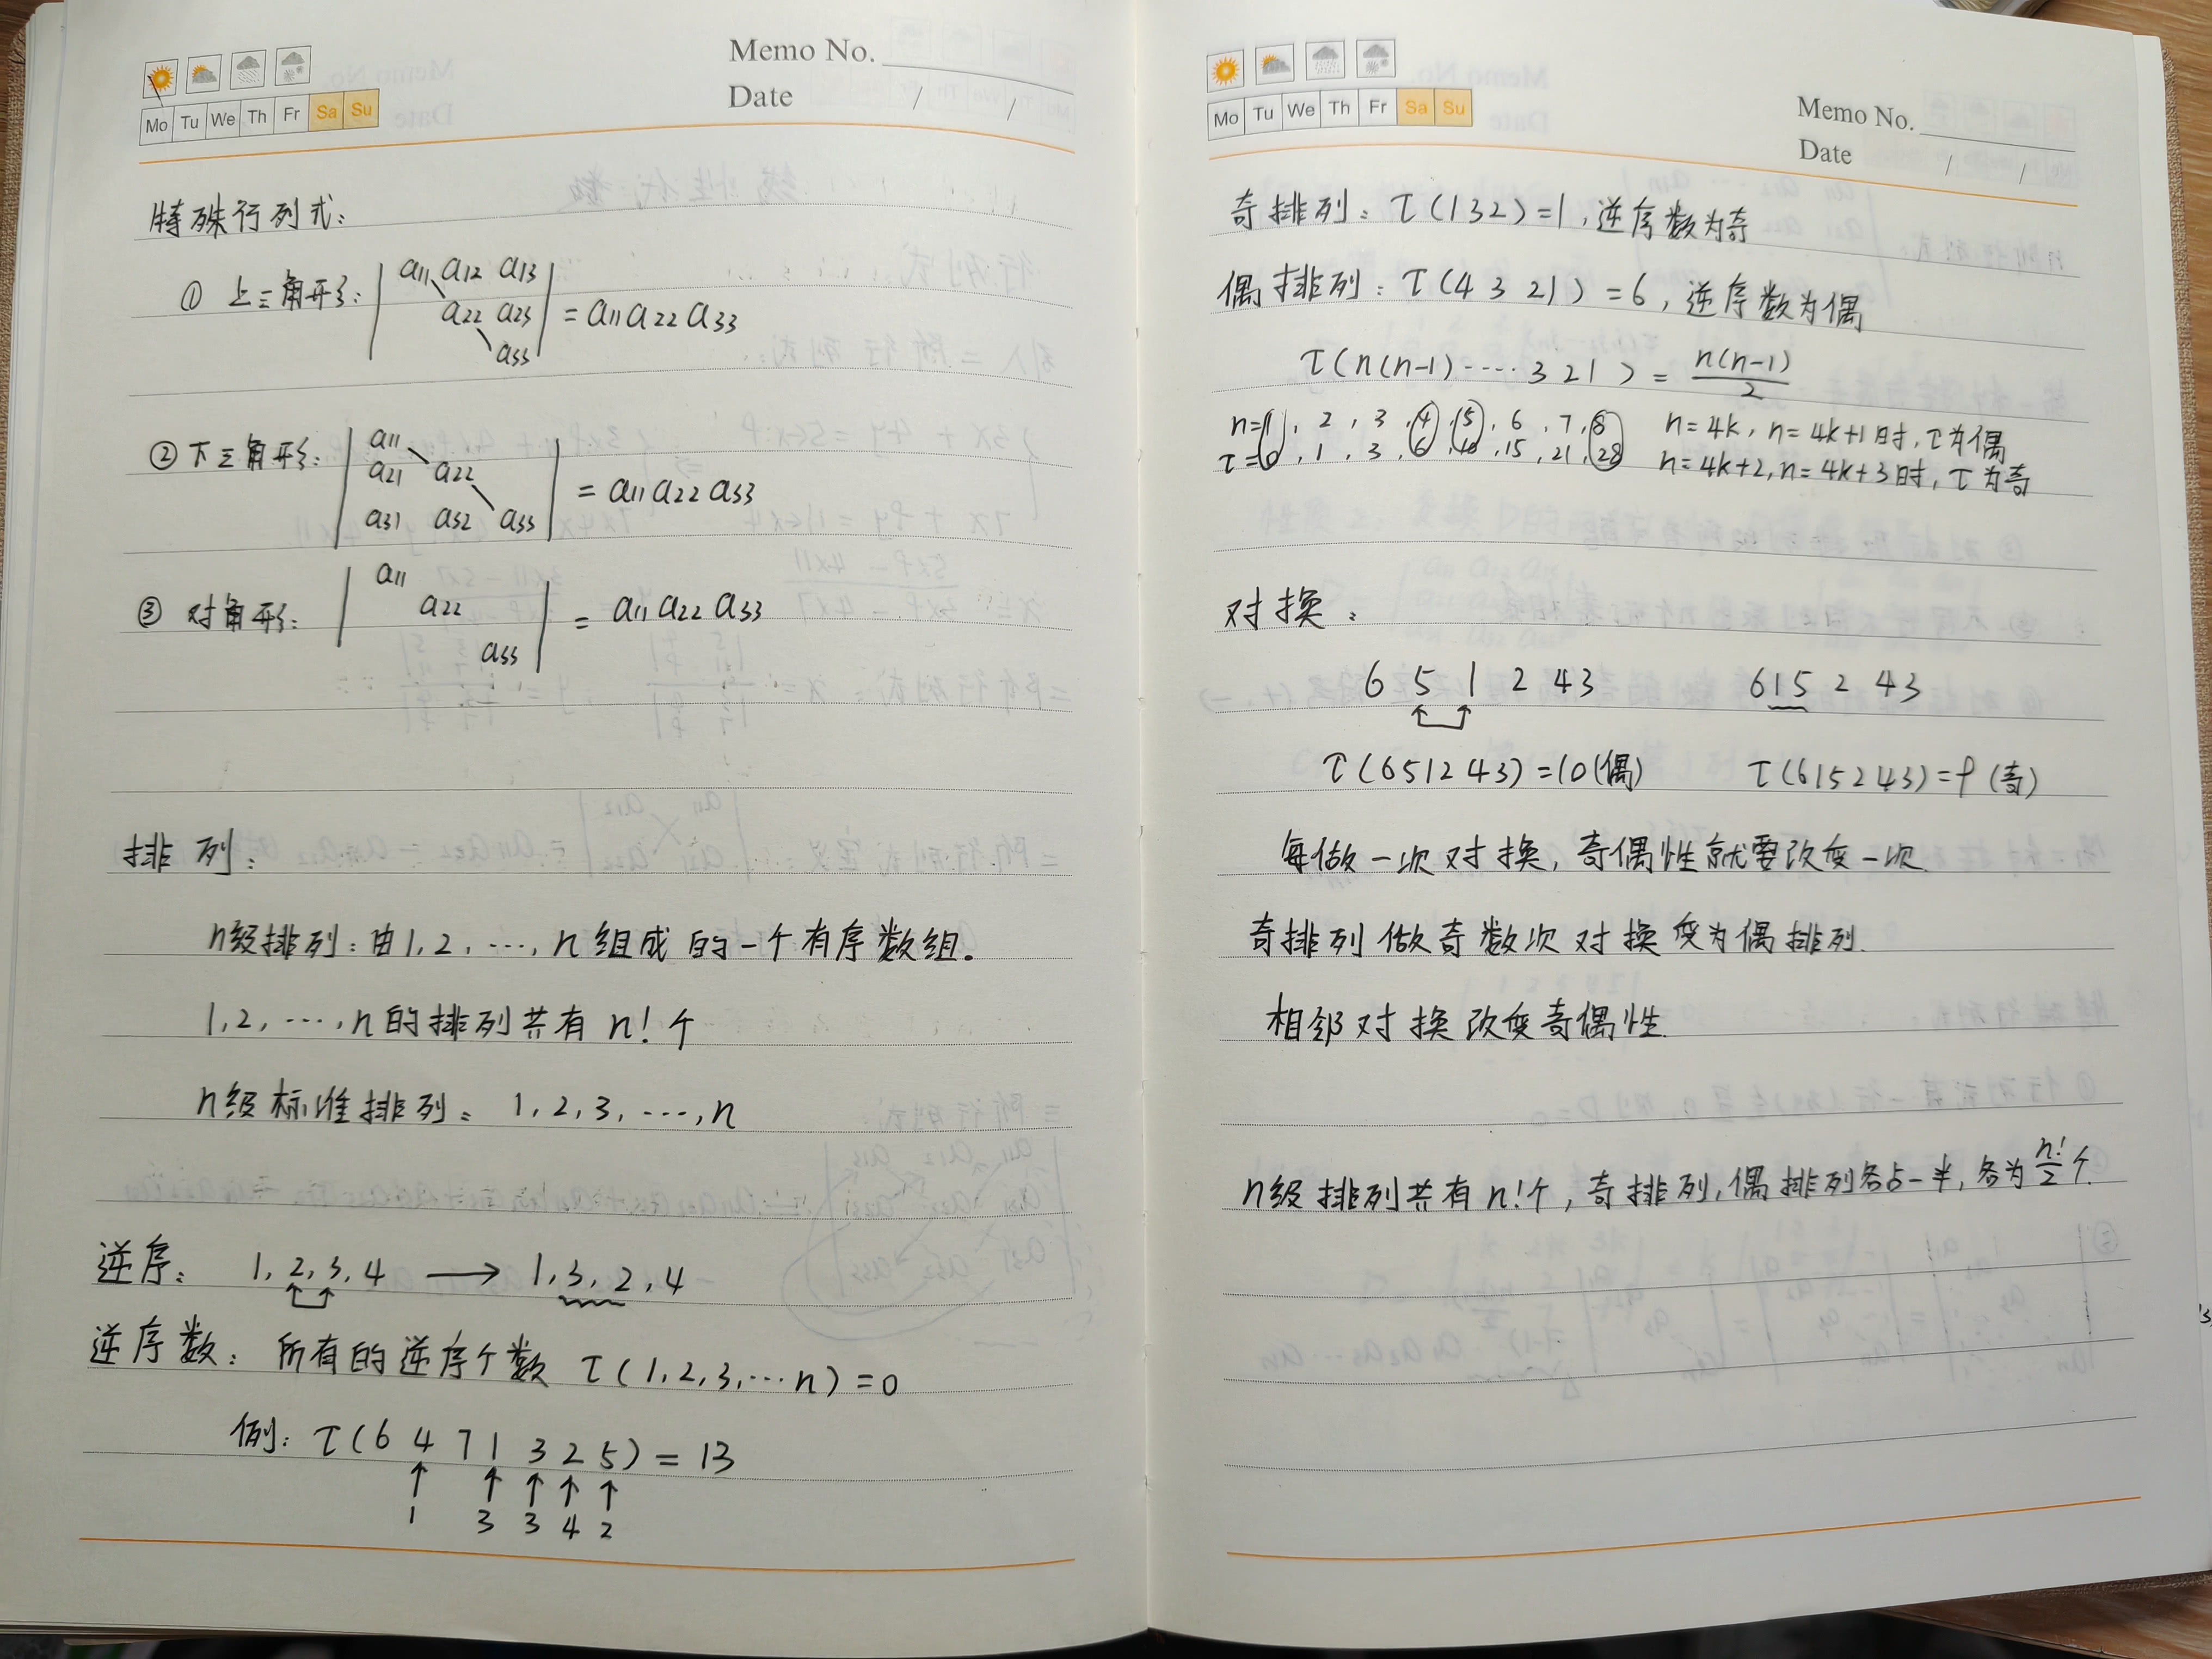 Memo No.
Mo Tu We Th Fr Sa Su
Date / /
特殊行列式:
① 上三角形: | a11 a12 a13
a22 a23 | = a11 a22 a33
a33
② 下三角形: | a11
a21 a22 | = a11 a22 a33
a31 a32 a33
③ 对角形: | a11
a22 | = a11 a22 a33
a33
排列:
n级排列:由1,2,…,n组成的一个有序数组。
1,2,…,n的排列共有n!个
n级标准排列: 1,2,3,…,n
逆序: 1,2,3,4 → 1,3,2,4
逆序数: 所有的逆序个数 τ(1,2,3,…n)=0
例: τ(6 4 7 1 3 2 5) = 13
↑ ↑ ↑ ↑ ↑
1 3 3 4 2
Mo Tu We Th Fr Sa Su
Memo No.
Date / /
奇排列: τ(132)=1,逆序数为奇
偶排列: τ(4 3 2 1)=6,逆序数为偶
τ(n(n-1)····3 2 1) = n(n-1)/2
n=1, 2, 3, 4, 5, 6, 7, 8 n=4k, n=4k+1时,τ为偶
τ=0, 1, 3, 6, 10, 15, 21, 28 n=4k+2, n=4k+3时,τ为奇
对换:
6 5 1 2 4 3 6 1 5 2 4 3
τ(651243)=10(偶) τ(615243)=9(奇)
每做一次对换,奇偶性就要改变一次.
奇排列做奇数次对换变为偶排列.
相邻对换改变奇偶性.
n级排列共有n!个,奇排列,偶排列各占一半,各为n!/2个.